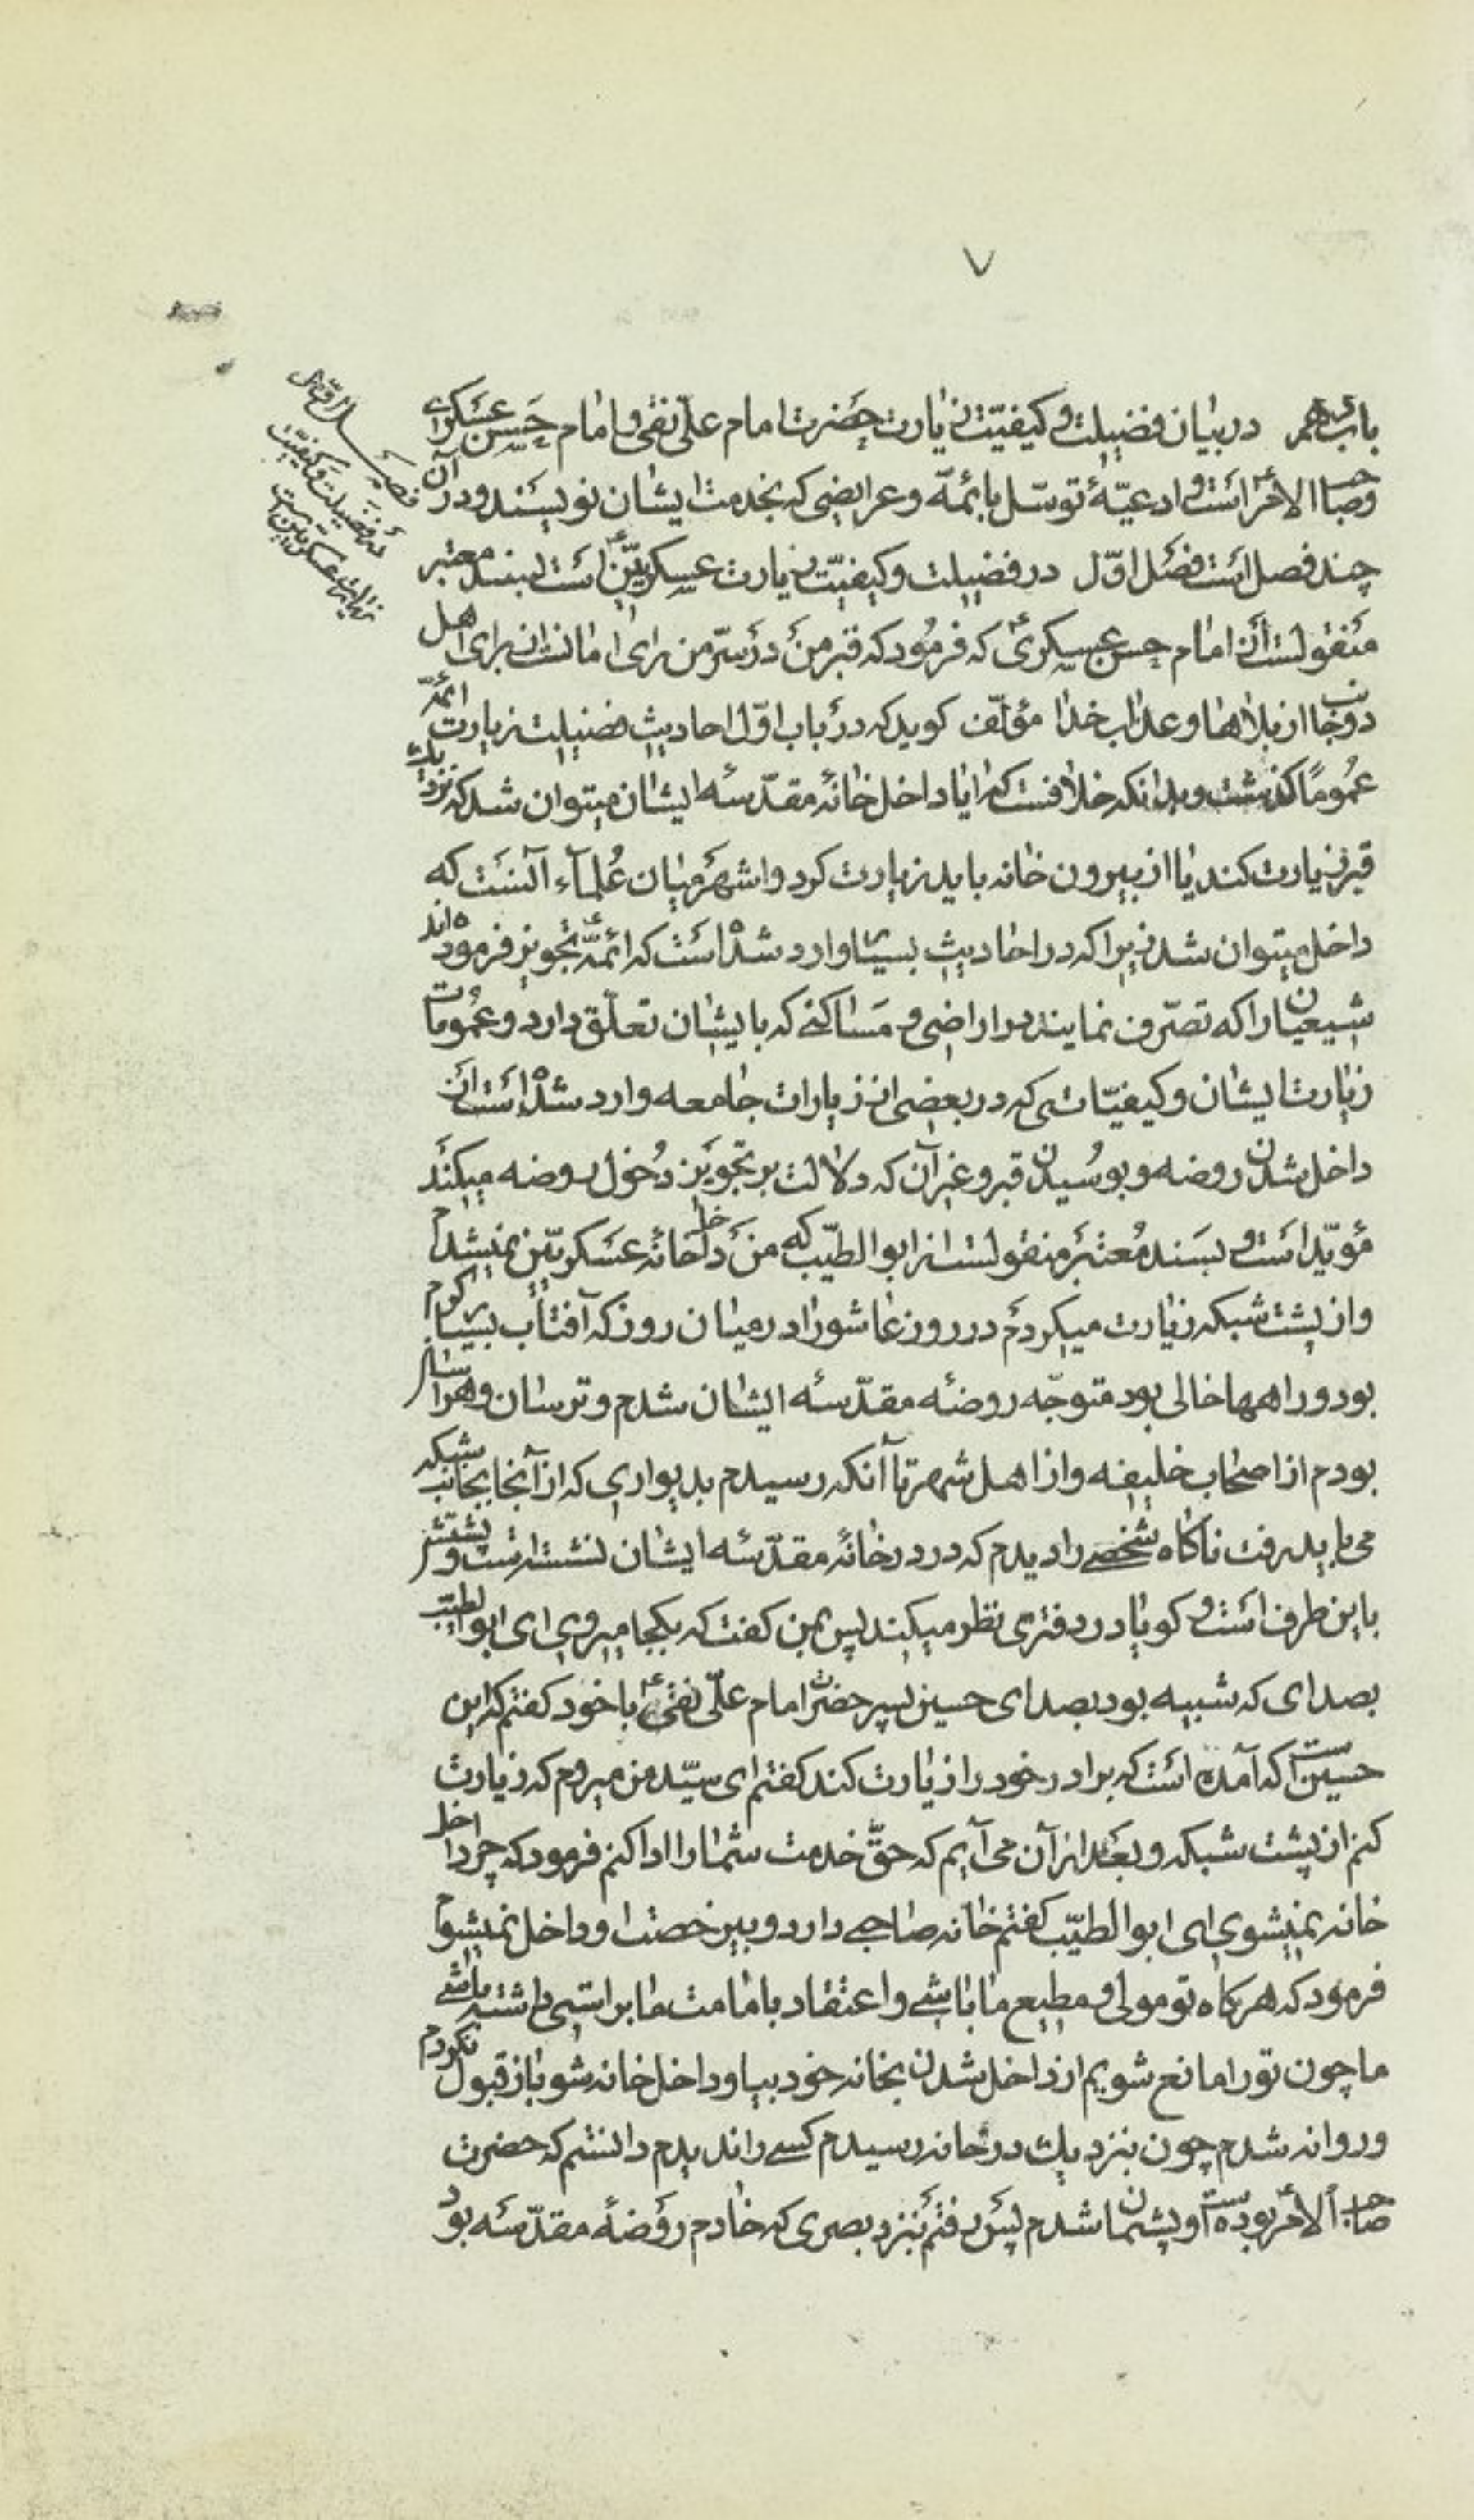 ۷
فصل اوّل
در فضیلت و کیفیّت
زیارت عسکریین است
باب نهم در بیان فضیلت و کیفیّت زیارت حضرت امام علی نقی و امام حسن عسکری
و صاحب الامر است و ادعیّهٔ توسّل بائمّه و عرایضی که بخدمت ایشان نویسند و در آن
چند فصل است فصل اوّل در فضیلت و کیفیّت زیارت عسکریّین ع است بسند معتبر
منقولست از امام حسن عسکری ع که فرمود که قبر من در سرّ من رای امانست از برای اهل
دو جانب از بلاها و عذاب خدا مؤلّف کوید که در باب اوّل احادیث فضیلت زیارت ائمّه
عمومًا کذشت و بدانکه خلافست که ایا داخل خانهٔ مقدّسه ایشان میتوان شد که نزدیك
قبر زیارت کنند یا از بیرون خانه باید زیارت کرد و اشهر میان علمآء آنست که
داخل میتوان شد زیرا که در احادیث بسیار وارد شده است که ائمّه ع تجویز فرموده اند
شیعیان را که تصرّف نمایند در اراضی و مساکنی که بایشان تعلّق دارد و عمومات
زیارت ایشان و کیفیّاتی که در بعضی از زیارات جامعه وارد شده است از
داخل شدن روضه و بوسیدن قبر و غیر آن که دلالت بر تجویز دخول روضه میکند
مؤیّد است و بسند معتبر منقولست از ابو الطیّب که من داخل خانهٔ عسکریّین نمیشدم
و از پشت شبکه زیارت میکردم در روز عاشورا در میان روز که آفتاب بسیار کرم
بود و راهها خالی بود متوجّه روضهٔ مقدّسهٔ ایشان شدم و ترسان و هراسان
بودم از اصحاب خلیفه و از اهل شهر تا آنکه رسیدم بدیواری که از آنجا بجانب شبکه
می باید رفت ناکاه شخصی را دیدم که در در خانهٔ مقدّسه ایشان نشسته است و پشتش
باین طرف است و کویا در دفتری نظر میکند پس بمن کفت که بکجا میروی ای ابو الطیّب
بصدای که شبیه بود بصدای حسین پسر حضرت امام علی نقی ع با خود کفتم که این
حسین است که آمده است که برادر خود را زیارت کند کفتم ای سیّد من میروم که زیارت
کنم از پشت شبکه و بعد از آن می آیم که حقّ خدمت شما را ادا کنم فرمود که چرا داخل
خانه نمیشوی ای ابو الطیّب کفتم خانه صاحبی دارد و بی رخصت او داخل نمیشوم
فرمود که هرکاه تو مولی و مطیع ما باشی و اعتقاد بامامت ما براستی داشته باشی
ما چون تو را مانع شویم از داخل شدن بخانه خود بیا و داخل خانه شو باز قبول نکردم
و روانه شدم چون بنزدیك در خانه رسیدم کسی را ندیدم دانستم که حضرت
صاحب الامر ع بوده است و پشیمان شدم پس رفتم بنزد بصری که خادم روضهٔ مقدّسه بود